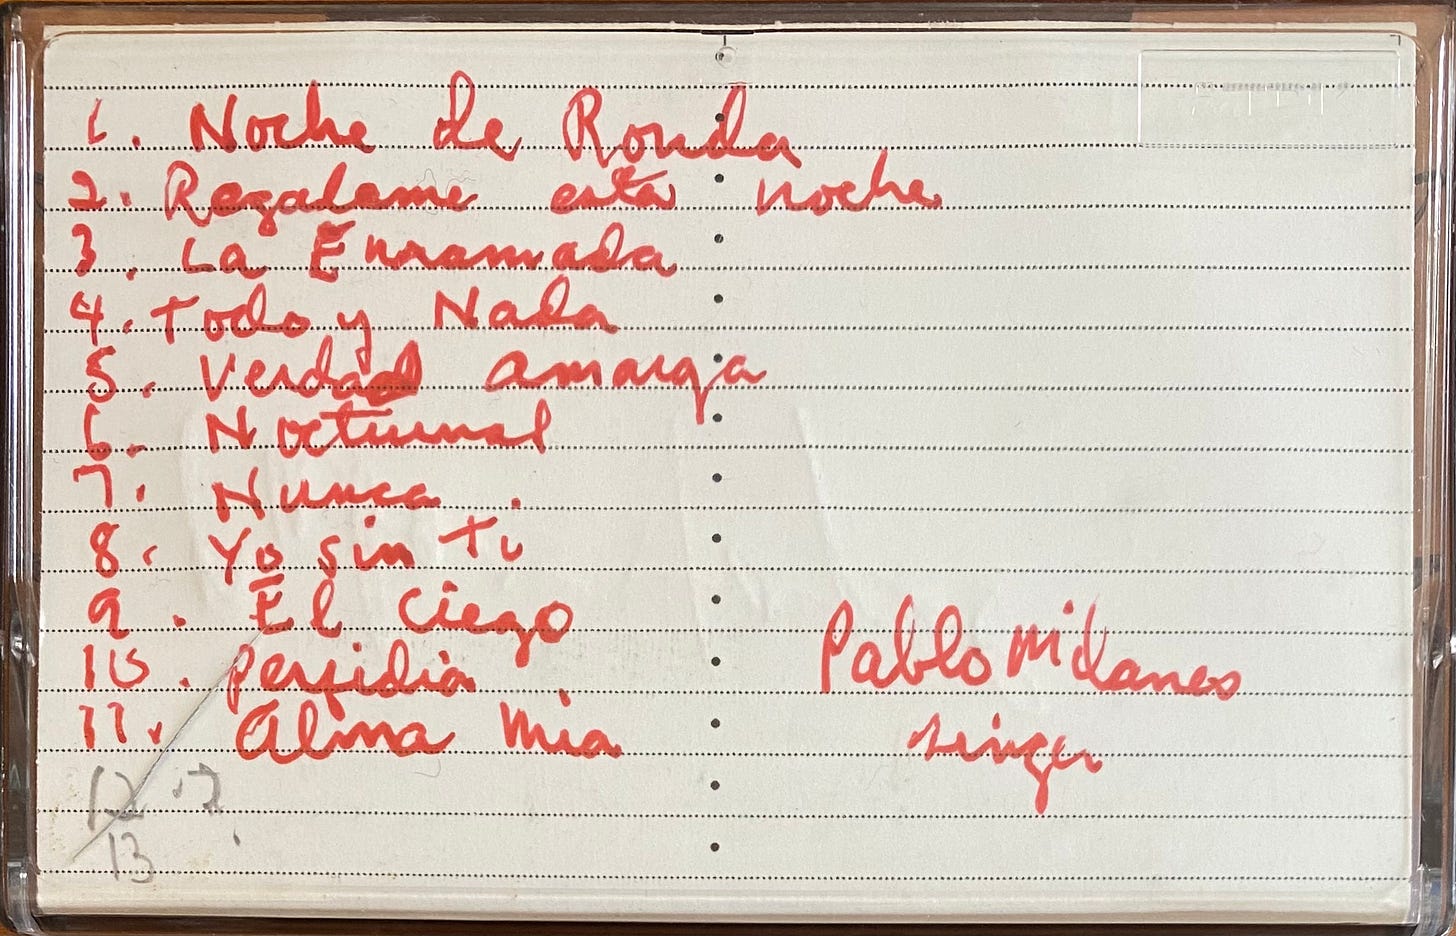 1. Noche de Ronda
2. Regalame esta noche
3. La Enramada
4. Todo y Nada
5. Verdad amarga
6. Nocturnal
7. Nunca
8. Yo sin ti
9. El Ciego
10. Perfidia
11. Alma Mia
12.
13
Pablo Milanes
singer